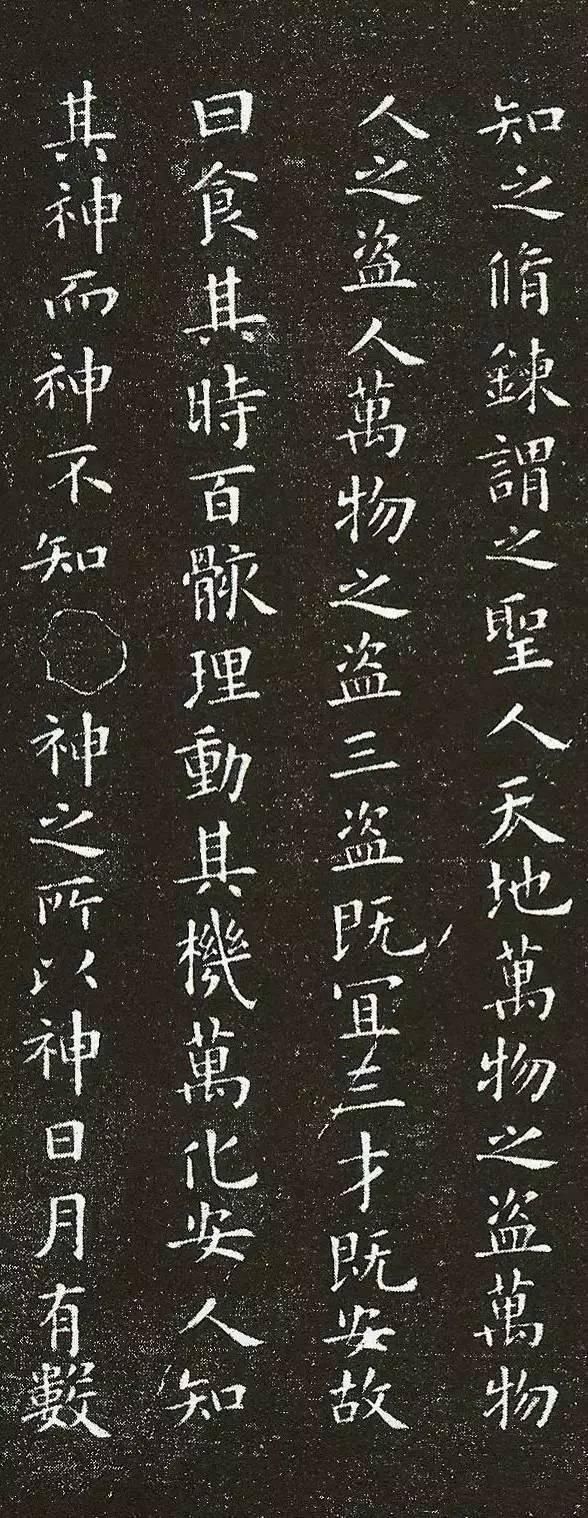 知之脩鍊謂之聖人天地萬物之盜萬物
人之盜人萬物之盜三盜既宜三才既安故
曰食其時百骸理動其機萬化安人知
其神而神不知神之所以神日月有數